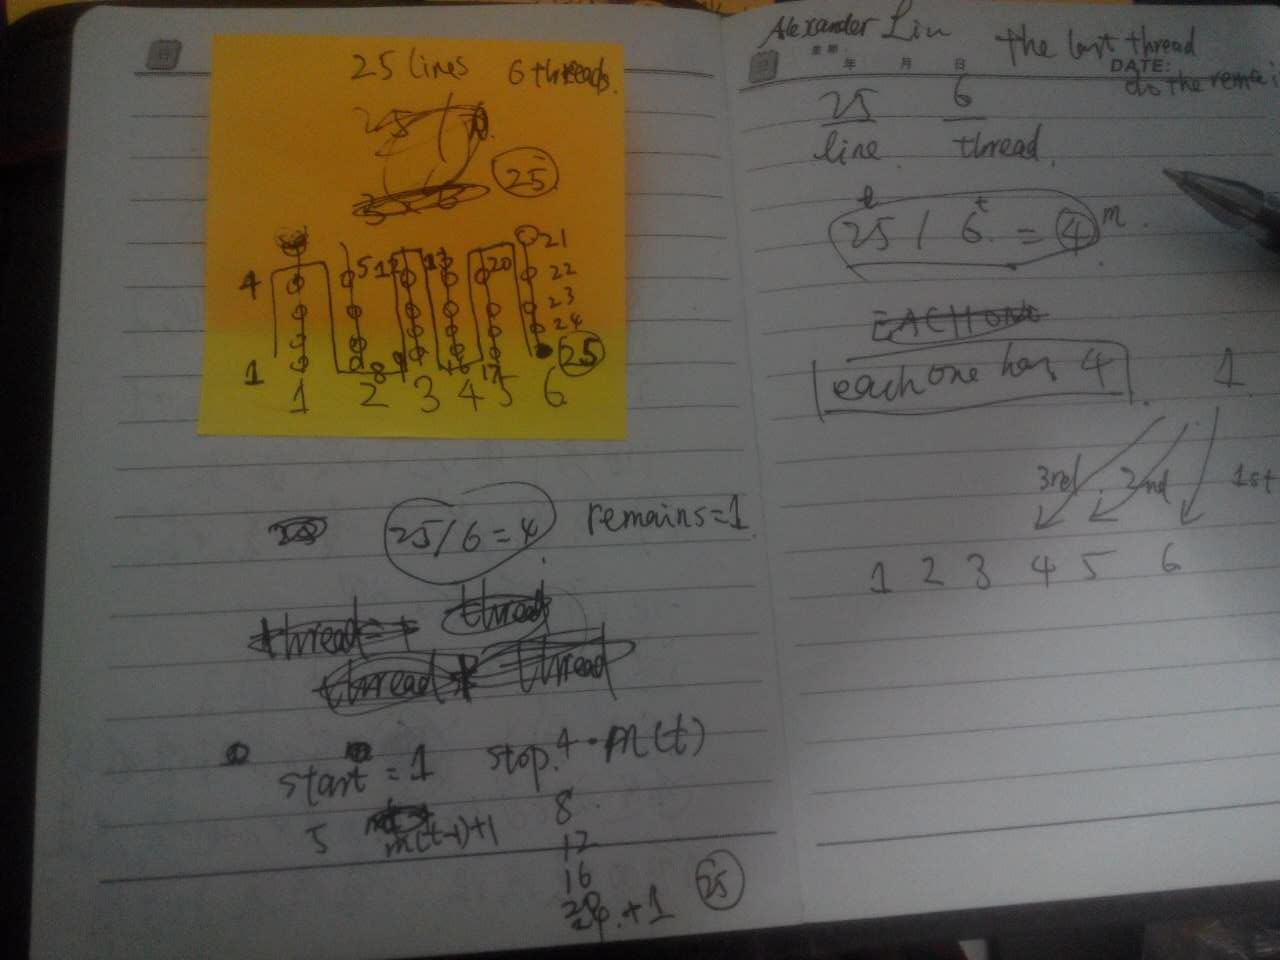 25 lines 6 threads.
25 /
25
21
4 5 12 13 20 22
23
24
25
1 8 9 16 17
1 2 3 4 5 6
25/6=4 remains=1
thread
thread thread
start = 1 stop. 4 · m(t)
5 m(t-1)+1 8
12
16
24 +1 25
Alexander Lin the last thread
年 月 日 DATE:
do the remai
25 6
line. thread.
l t
25 / 6 = 4 m.
EACH ONE
each one has 4 1
3rd 2nd 1st
1 2 3 4 5 6